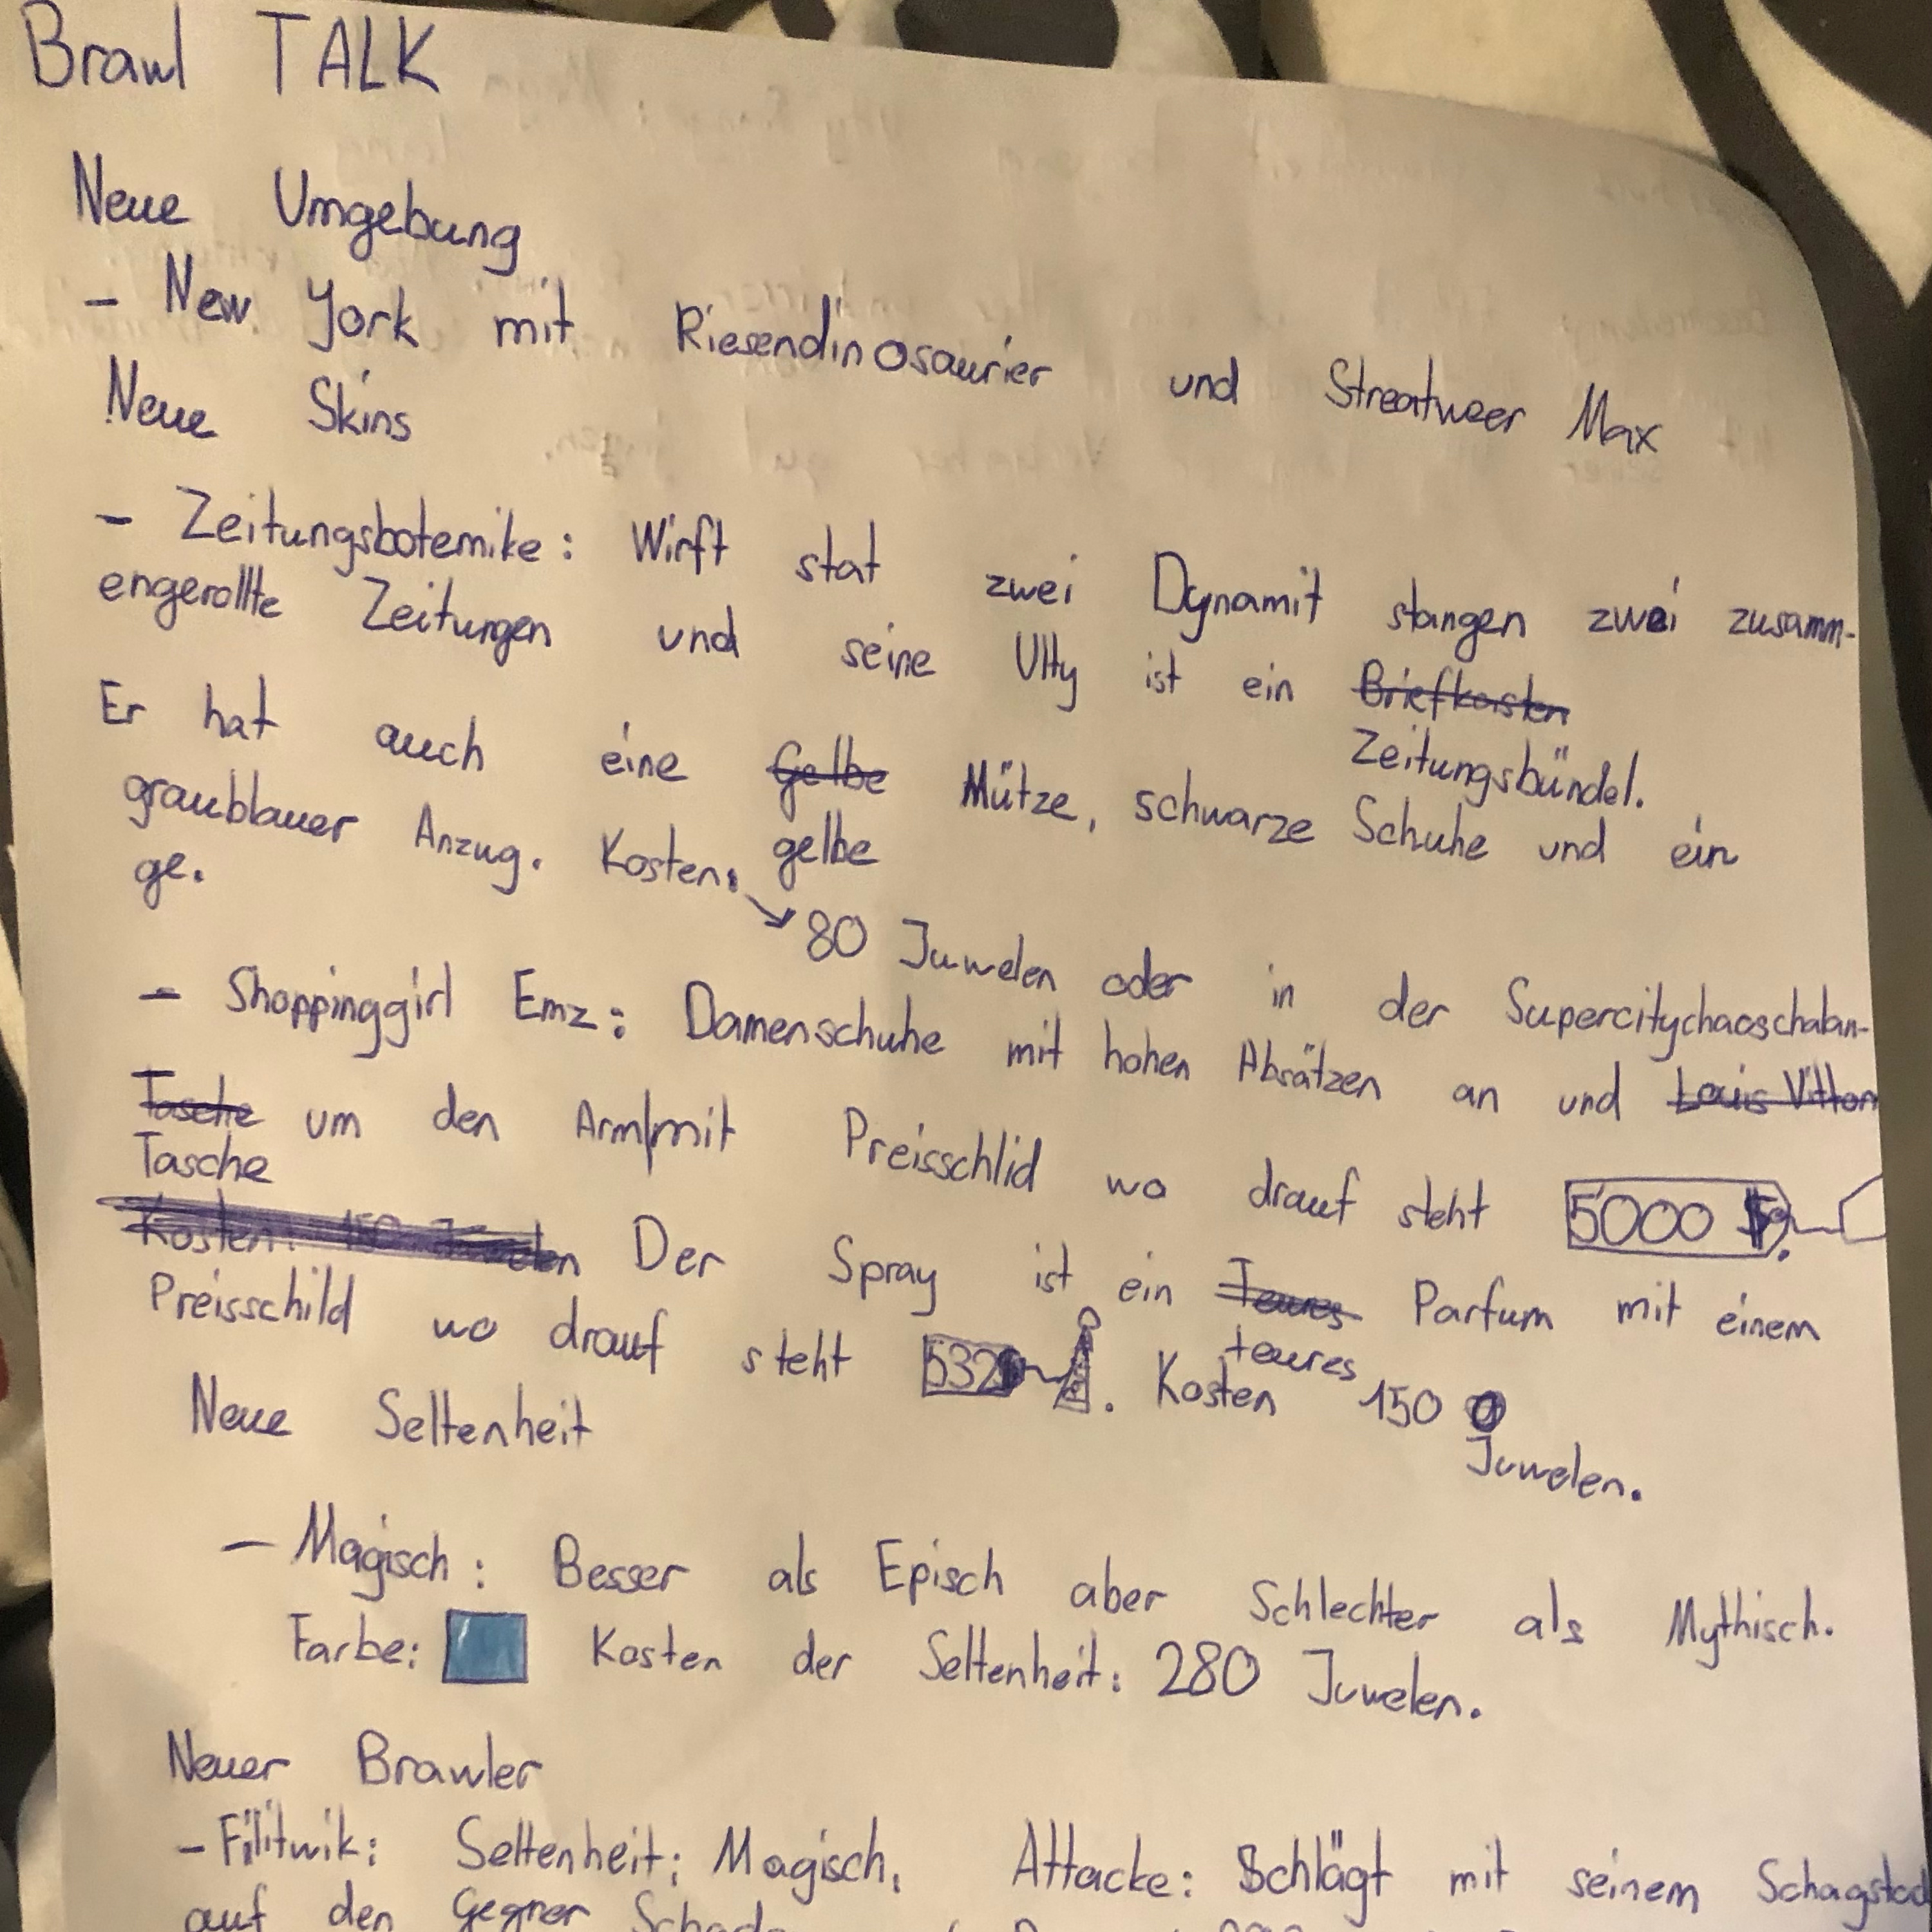 Brawl TALK
Neue Umgebung
- New York mit Riesendinosaurier und Streatweer Max
Neue Skins
- Zeitungsbotemike: Wirft stat zwei Dynamit stangen zwei zusamm-
engerollte Zeitungen und seine Ulty ist ein Briefkasten
Zeitungsbündel.
Er hat auch eine Gelbe Mütze, schwarze Schuhe und ein
gelbe
graublauer Anzug. Kosten:
80 Juwelen oder in der Supercitychaoschalan-
ge.
- Shoppinggirl Emz: Damenschuhe mit hohen Absätzen an und Louis Vitton
Tasche um den Arm mit Preisschlid wo drauf steht 5000 $.
Tasche
Kosten: 150 Juwelen Der Spray ist ein Teures Parfum mit einem
teures
Preisschild wo drauf steht 532$. Kosten 150
Juwelen.
Neue Seltenheit
- Magisch: Besser als Episch aber Schlechter als Mythisch.
Farbe: Kosten der Seltenheit: 280 Juwelen.
Neuer Brawler
- Filitwik: Seltenheit: Magisch. Attacke: Schlägt mit seinem
auf den Gegner